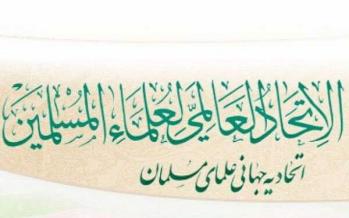 الاتحاد العالمي لعلماء المسلمين
اتحادیه جهانی علمای مسلمان